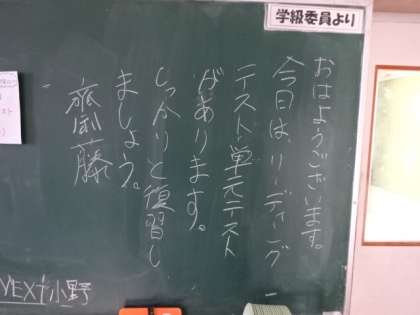 学級委員より
おはようございます。
今日は、リーディング
テスト、単元テスト
があります。
しっかりと復習し
ましょう。
齋藤
NEXT小野